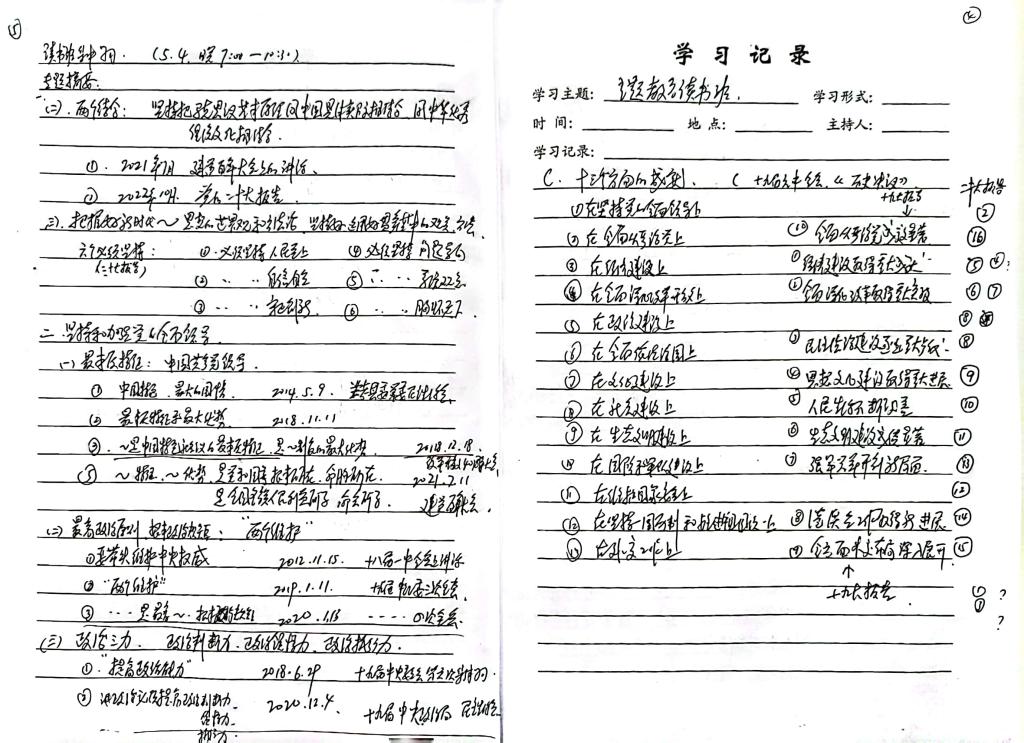 ⑤
读书班学习. (5.4. 晚7:00—10:30)
专题摘要:
(二). 两个结合: 坚持把马克思主义基本原理同中国具体实际相结合、同中华优秀
传统文化相结合.
①. 2021年7月 建党百年大会上的讲话.
② 2022年10月. 党的二十大报告.
三. 把握好新时代～思想的世界观和方法论, 坚持好、运用好贯穿其中的立场观点方法.
六个必须坚持: ① 必须坚持人民至上 ④ 必须坚持问题导向
(二十大报告)
② · · 自信自立 ⑤ · · 系统观念
③ · · 守正创新 ⑥ · · 胸怀天下
二. 坚持和加强党的全面领导
(一) 最本质特征: 中国共产党领导.
① 中国特色、最大的国情 2014.5.9.
② 最本质特征和最大优势 2018.11.11
③. ～是中国特色社会主义最本质特征, 是～制度的最大优势 2018.12.18.
改革开放40周年大会
⑤ ～特征、～优势, 是党和国家根本所在、命脉所在 2021.7.11
是全国各族人民利益所系、命运所系 建党大会
(二) 最高政治原则 "两个维护"
①要带头维护中央权威 2012.11.15. 十八届一中全会上讲话
② "两个维护" 2019.1.11. 十九届中纪委三次全会
③ 2020.1.13 四次全会
(三) 政治三力. 政治判断力、政治领悟力、政治执行力.
①. "提高政治能力" 2018.6.29 十九届中央政治局第六次集体学习.
② 2020.12.4. 十九届中央政治局 民主生活会
领悟力.
执行力.
⑥
学习记录
学习主题: 主题教育读书班. 学习形式:
时间: 地点: 主持人:
学习记录:
C. 十三个方面的成就. (十九届六中全会.《历史决议》
十九大报告
↓
二十大报告
① 在坚持党的全面领导上 ②
② 在全面从严治党上 ⑩ 全面从严治党成效显著 ⑯
③ 在经济建设上 ① 经济建设取得重大成就 ⑤ ④?
④ 在全面深化改革开放上 ② 全面深化改革取得重大突破 ⑥ ⑦
⑤ 在政治建设上 ⑧
⑥ 在全面依法治国上 ③ 民主法治建设迈出重大步伐 ⑧
⑦ 在文化建设上 ④ 思想文化建设取得重大进展 ⑨
⑧ 在社会建设上 ⑤ 人民生活不断改善 ⑩
⑨ 在生态文明建设上 ⑥ 生态文明建设成效显著 ⑪
⑩ 在国防和军队建设上 ⑦ 强军兴军开创新局面. ⑬
⑪ 在维护国家安全上 ⑫
⑫ 在坚持一国两制和推进祖国统一上 ⑧ 港澳台工作取得新进展 ⑭
⑬ 在外交工作上 ⑨ 全方面外交布局深入展开 ⑮
↑
十九大报告. ① ?
①
?